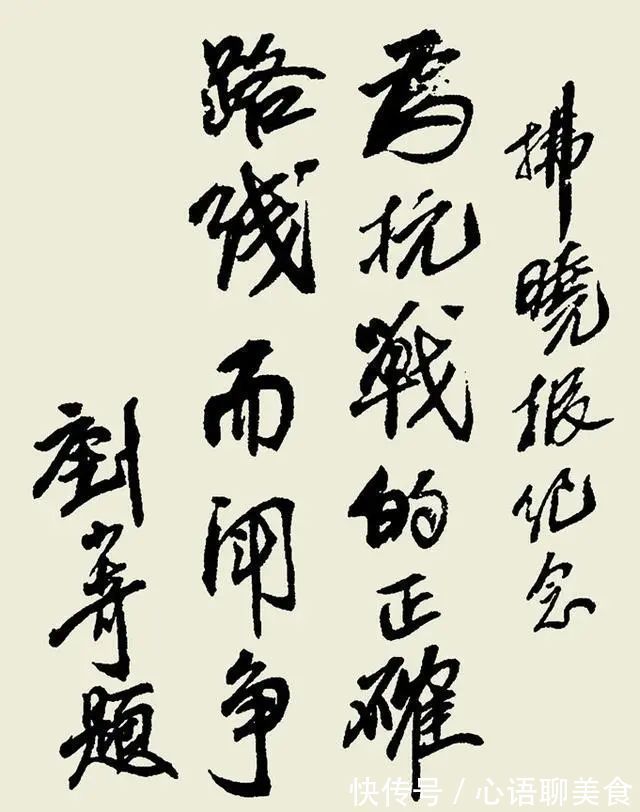 拂曉报纪念
为抗戰的正確
路线而闘争
劉少奇題
快传号 / 心语聊美食